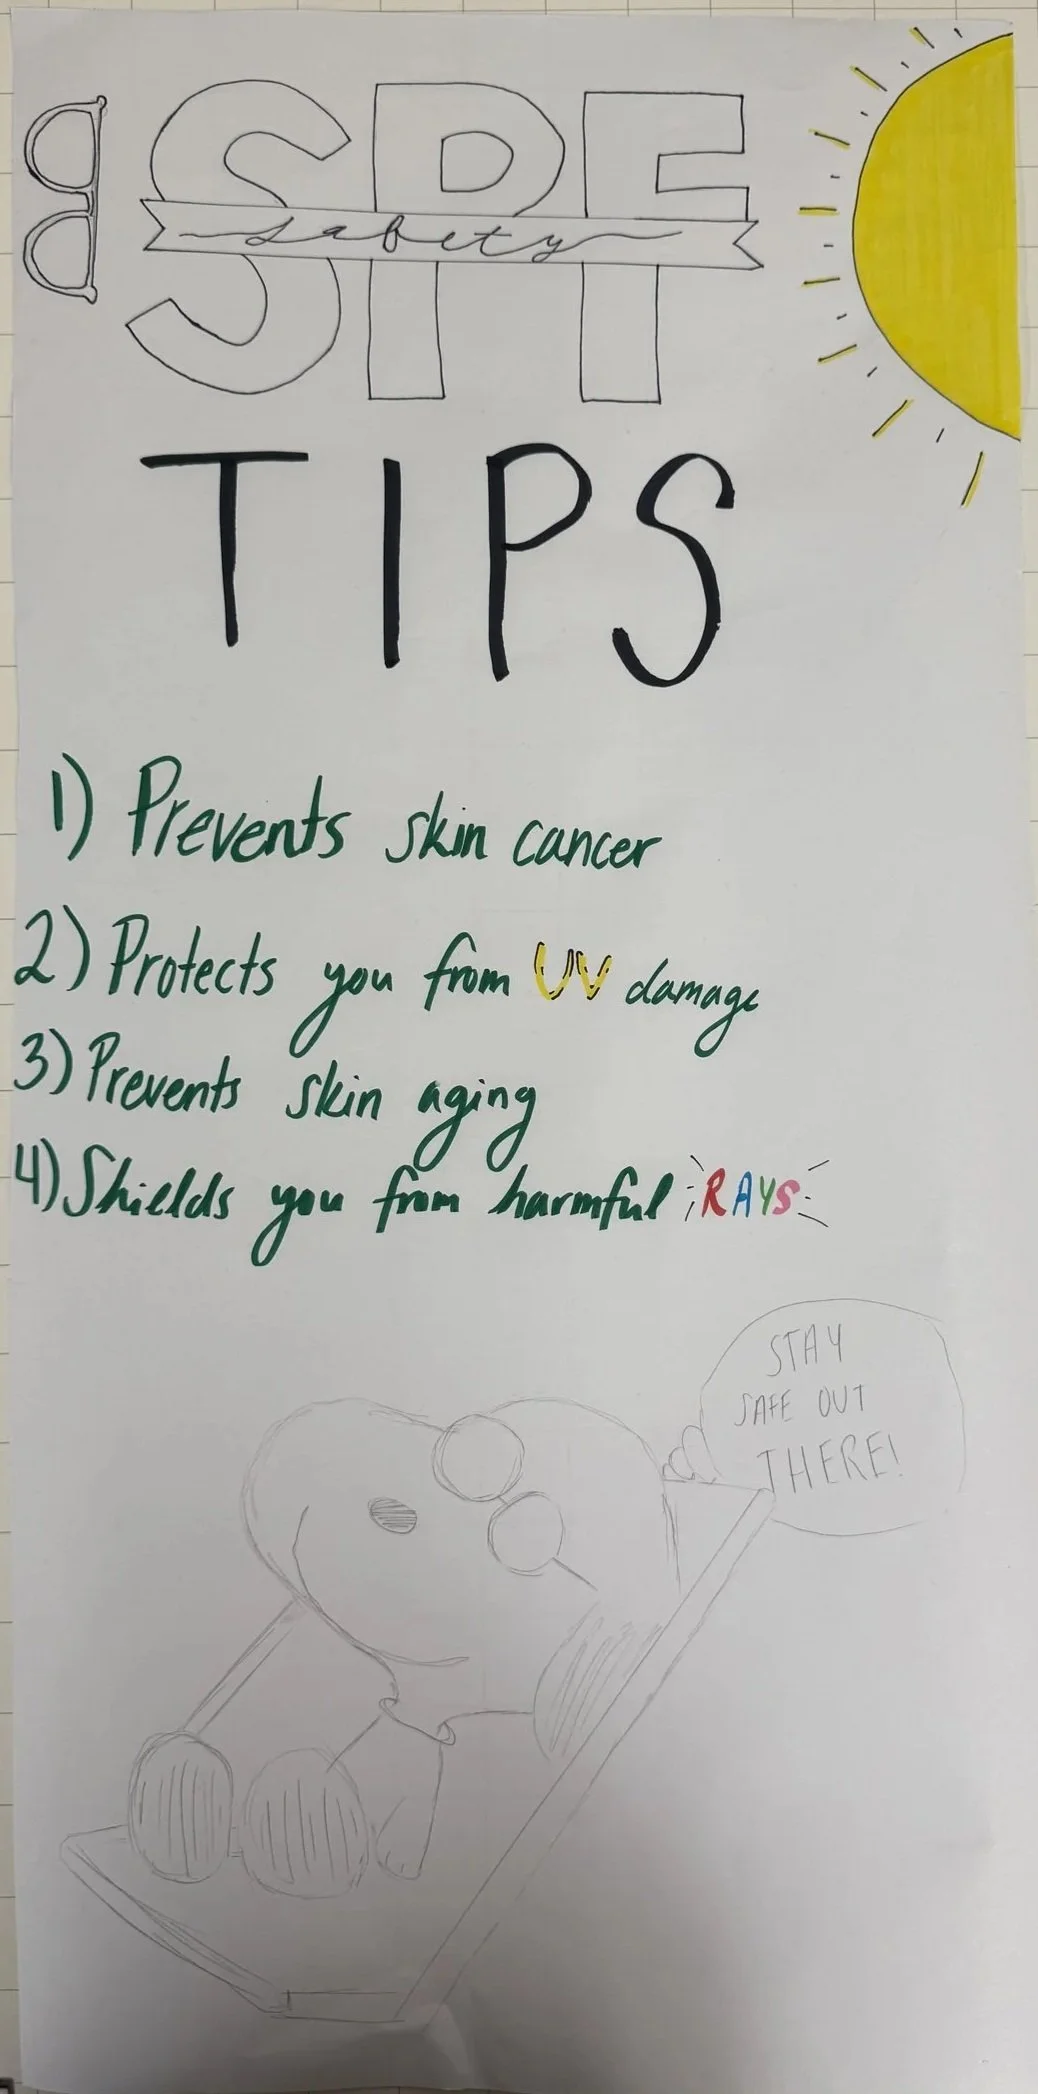 SPF
safety
TIPS
1) Prevents skin cancer
2) Protects you from UV damage
3) Prevents skin aging
4) Shields you from harmful RAYS
STAY
SAFE OUT
THERE!